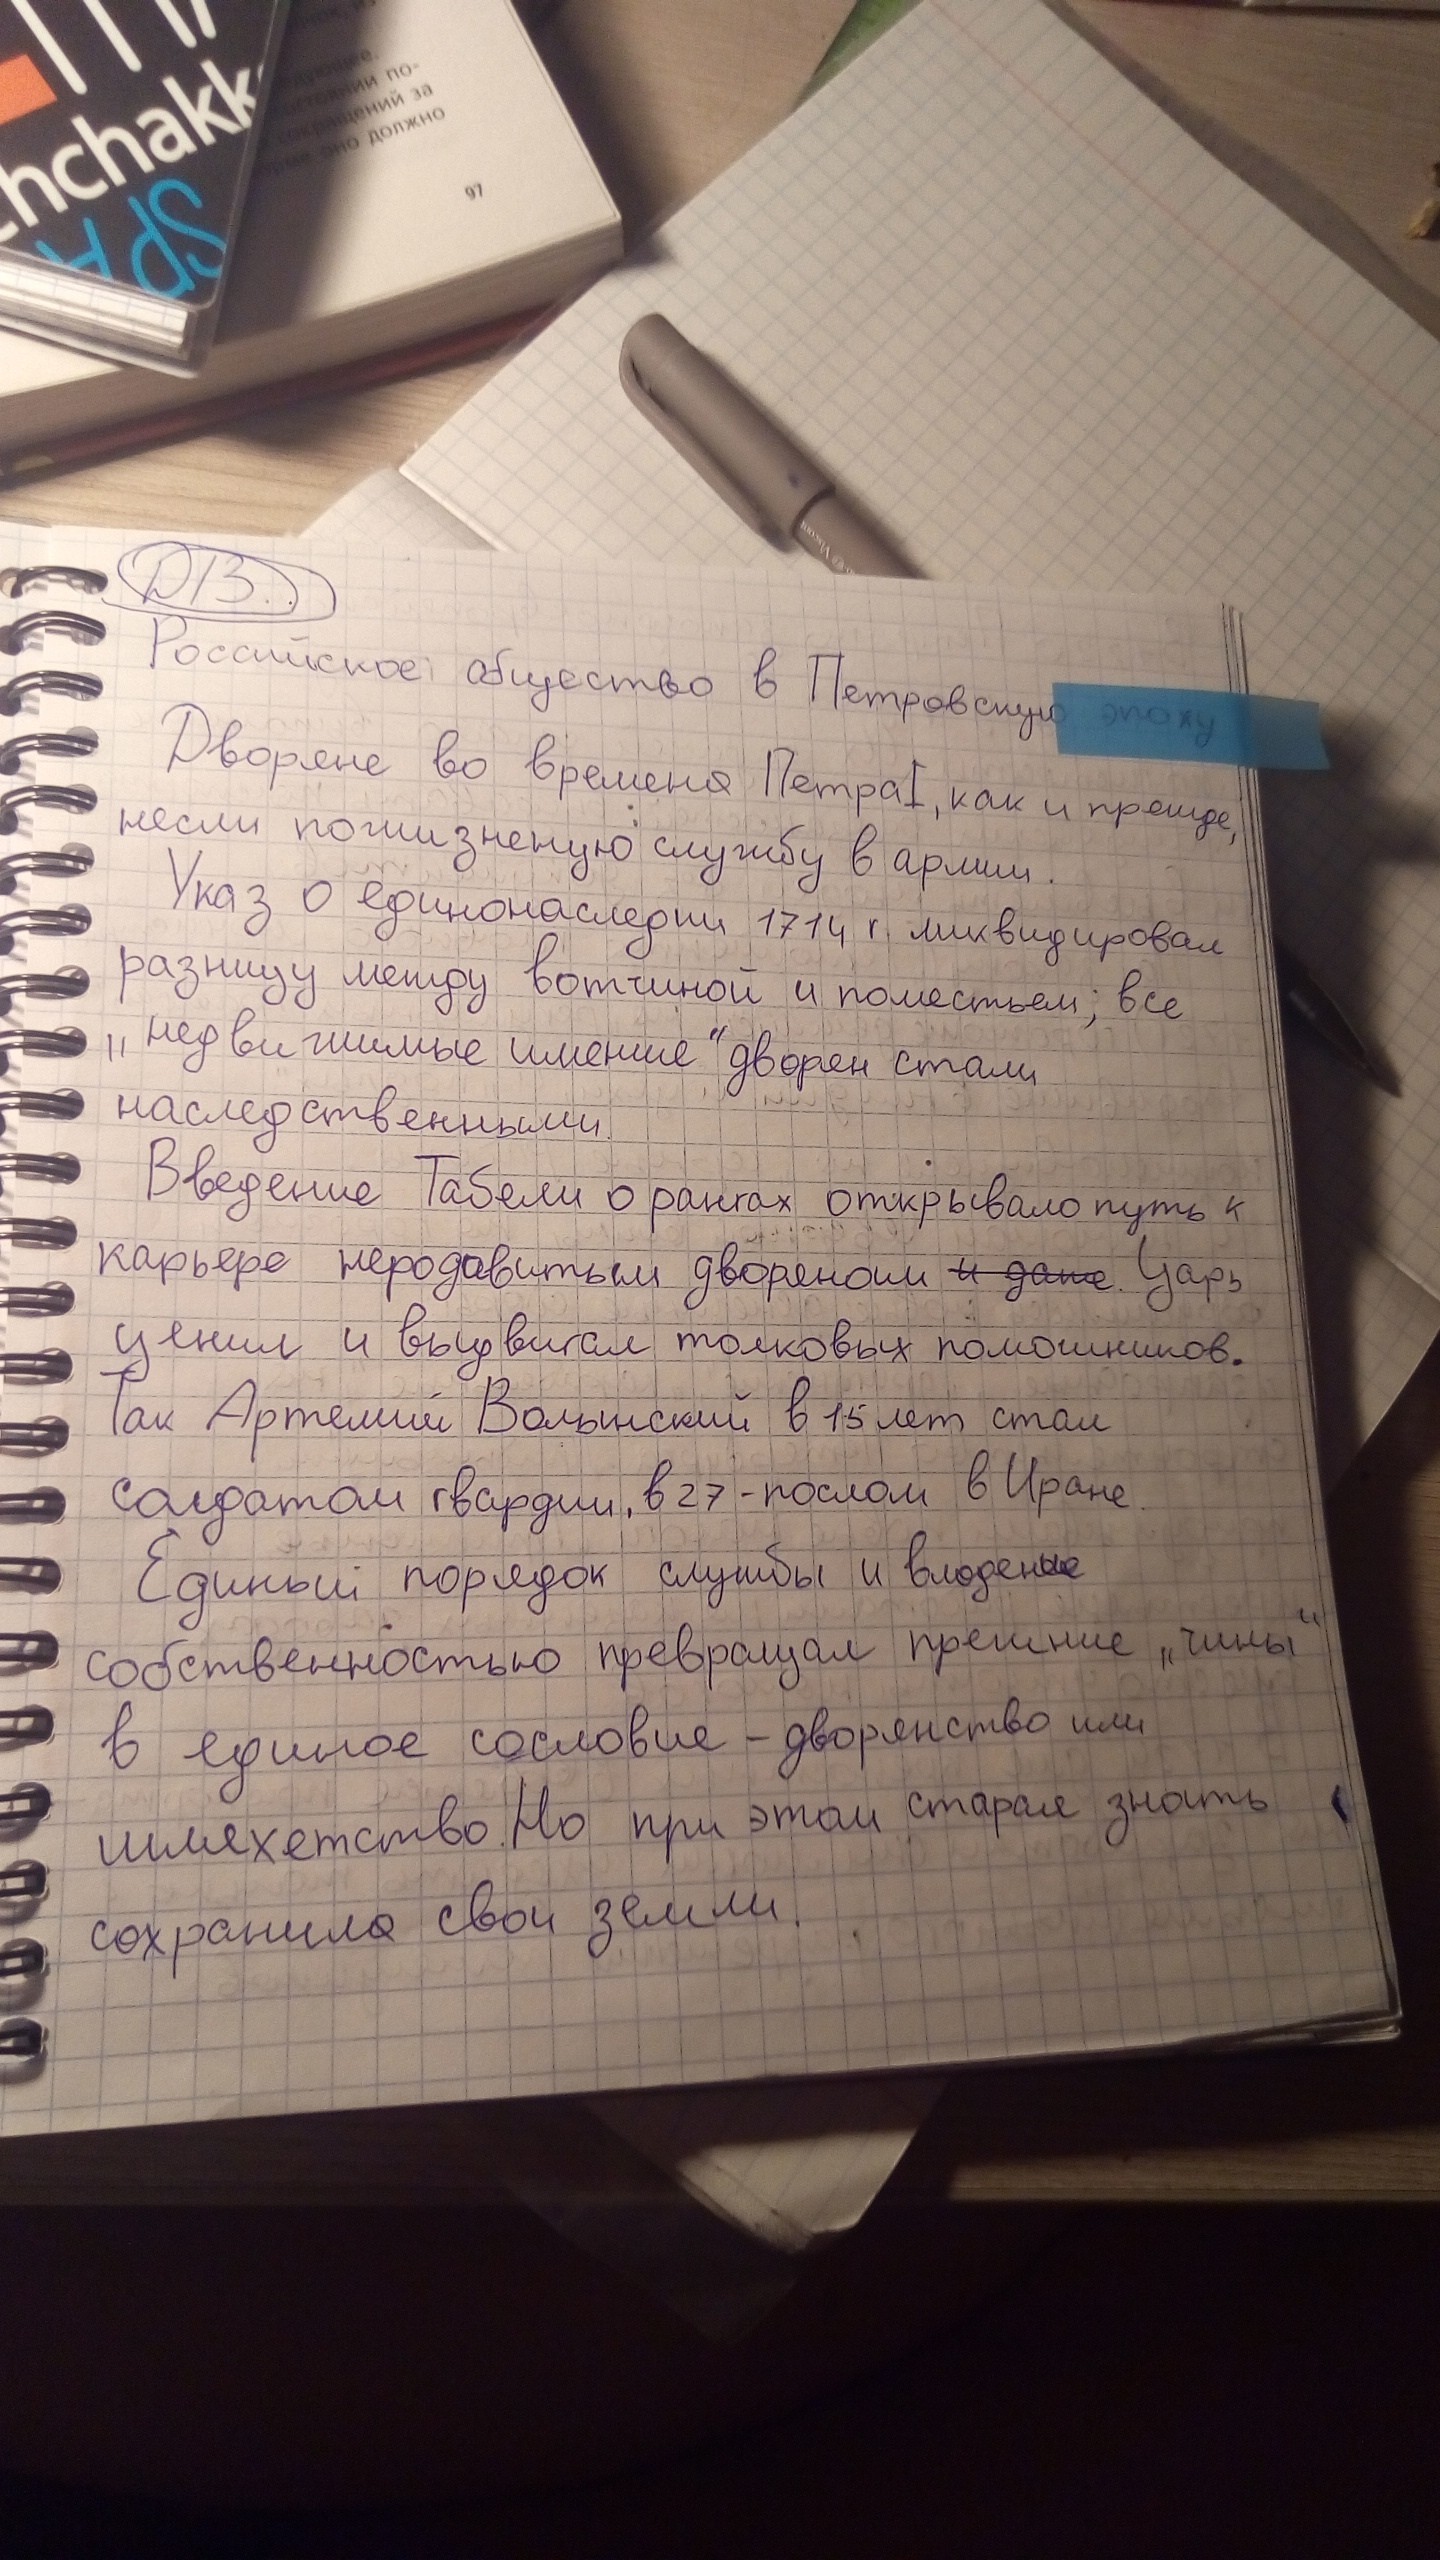 chchakk
SPA
едующее.
стоянии по-
сокращений за
оно должно
97
Д/З.
Российское общество в Петровскую эпоху
Дворяне во времена Петра I, как и прежде,
несли пожизненую службу в армии.
Указ о единонаследии 1714 г. ликвидировал
разницу между вотчиной и поместьем; все
„недвижимые имение“ дворян стали
наследственными.
Введение Табели о рангах открывало путь к
карьере неродовитым дворяном и даже. Царь
ценил и выдвигал толковых помошников.
Так Артемий Волынский в 15 лет стал
солдатом гвардии, в 27 - послом в Иране.
Единый порядок службы и владение
собственностью превращал прежние „чины“
в единое сословие - дворянство или
шляхетство. Но при этом старая знать
сохранила свои земли.